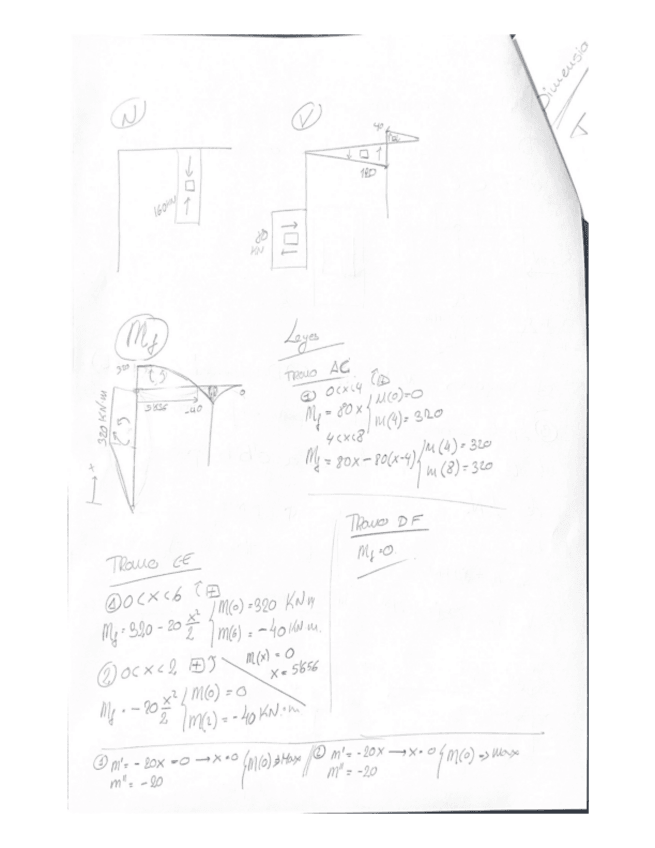 Dimensio
N
V
160 KN
40
120
80
KN
Mf
320
5'656
-40
0
320 KN·m
x
Leyes
TRAMO AC
① 0<x<4
Mf = 80x M(0)=0
M(4)=320
4<x<8
Mf = 80x - 80(x-4) M(4)=320
M(8)=320
TRAMO DF
Mf=0
TRAMO CE
① 0<x<6 +
Mf = 320 - 20 x²/2 M(0)=320 KN·m
M(6) = -40 KN·m.
M(x) = 0
x = 5'656
② 0<x<2 +
Mf = -20 x²/2 M(0) = 0
M(2) = -40 KN·m
① m' = -20x = 0 → x=0 M(0) ⇒ Max
m'' = -20
② m' = -20x → x=0 M(0) ⇒ max
m'' = -20